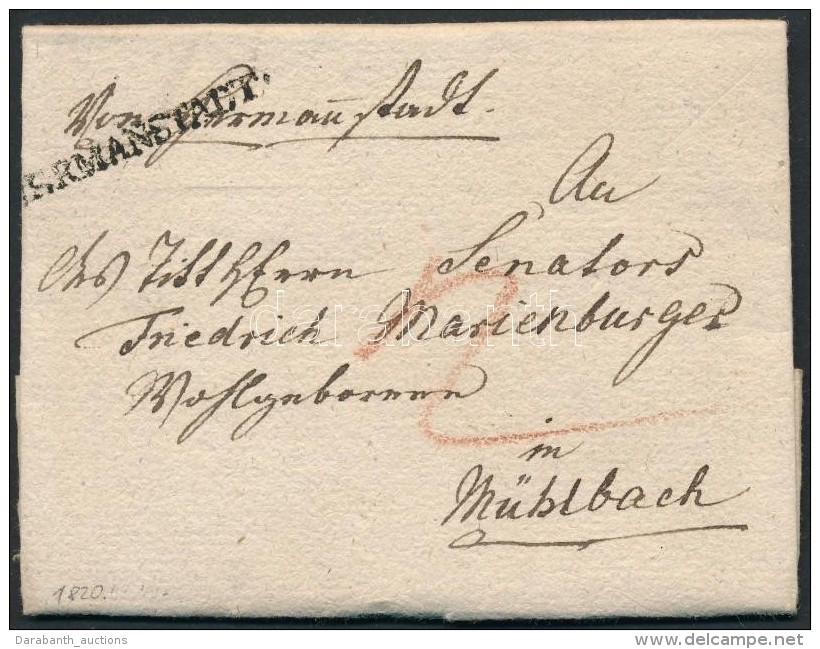 Von Hermannstadt.
HERMANSTADT.
An
des Titt HErrn Senators
Friedrich Marienburger
Wohlgeboren
in
Mühlbach
1820.
darabanth
Darabanth_auctions
delcampe.net